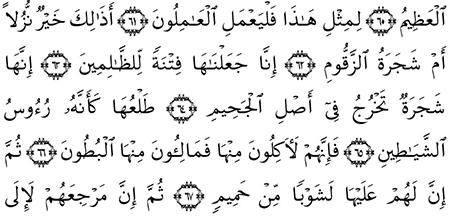 ٱلْعَظِيمُ ﴿٦٠﴾ لِمِثْلِ هَٰذَا فَلْيَعْمَلِ ٱلْعَٰمِلُونَ ﴿٦١﴾ أَذَٰلِكَ خَيْرٌ نُّزُلًا
أَمْ شَجَرَةُ ٱلزَّقُّومِ ﴿٦٢﴾ إِنَّا جَعَلْنَٰهَا فِتْنَةً لِّلظَّٰلِمِينَ ﴿٦٣﴾ إِنَّهَا
شَجَرَةٌ تَخْرُجُ فِىٓ أَصْلِ ٱلْجَحِيمِ ﴿٦٤﴾ طَلْعُهَا كَأَنَّهُۥ رُءُوسُ
ٱلشَّيَٰطِينِ ﴿٦٥﴾ فَإِنَّهُمْ لَءَاكِلُونَ مِنْهَا فَمَالِـُٔونَ مِنْهَا ٱلْبُطُونَ ﴿٦٦﴾ ثُمَّ
إِنَّ لَهُمْ عَلَيْهَا لَشَوْبًا مِّنْ حَمِيمٍ ﴿٦٧﴾ ثُمَّ إِنَّ مَرْجِعَهُمْ لَإِلَى